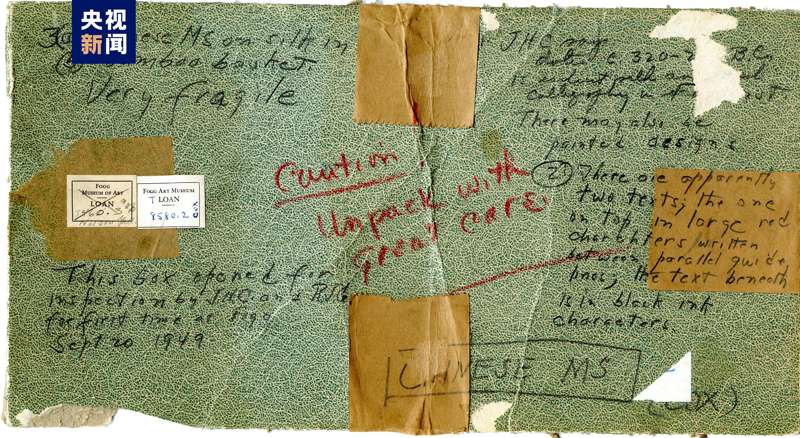 央视
新闻
Chinese MS on silk in
bamboo basket.
Very fragile
Caution!
Unpack with
great care.
FOGG
MUSEUM OF ART
LOAN
FOGG ART MUSEUM
T LOAN
8580.2
This box opened for
inspection by JHC and
for first time at Fogg
Sept 20 1949
JHC says
date c 320-
calligraphy
There may also be
painted designs
(2) There are apparently
two texts; the one
on top in large red
characters written
between parallel guide
lines; the text beneath
is in black ink
characters.
CHINESE MS
(COX)